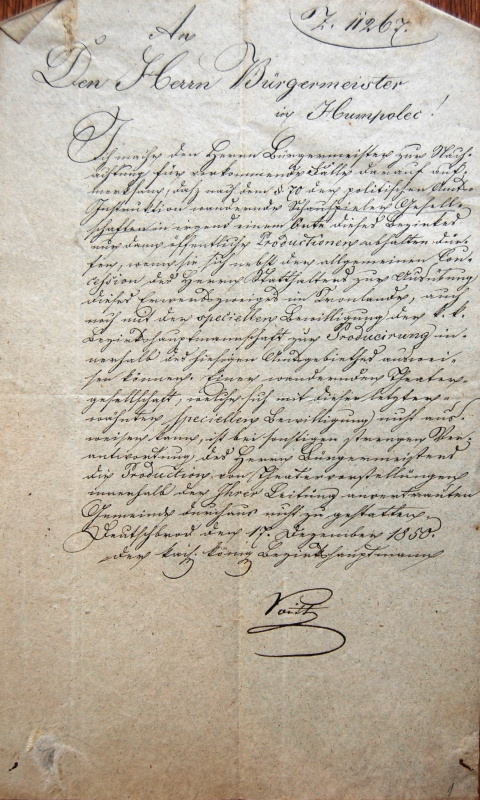 Z. 11267.
An
Den Herrn Bürgermeister
in Humpolec!
Ich mache den Herrn Bürgermeister zur Nach-
achtung für vorkommende Fälle darauf auf-
merksam, daß nach dem § 70 der politischen Amts-
Instruktion wandernde Schauspieler Gesell-
schaften in irgend einem Orte dieses Bezirkes
nur dann öffentliche Productionen abhalten dür-
fen, wenn sie sich nebst der allgemeinen Con-
cession des Herrn Statthalters zur Ausübung
dieses Erwerbszweiges im Kronlande, auch
noch mit der speciellen Bewilligung der k. k.
Bezirkshauptmannschaft zur Producirung in-
nerhalb des hiesigen Amtsgebiethes auswei-
sen können. Einer wandernden Theater-
gesellschaft, welche sich mit dieser letzter-
wähnten speciellen Bewilligung nicht aus-
weisen kann, ist bei sonstigen strengen Ver-
antwortung des Herrn Bürgermeisters
die Production von Theatervorstellungen
innerhalb der Ihrer Leitung anvertrauten
Gemeinde durchaus nicht zu gestatten.
Deutschbrod den 17. Dezember 1850.
Der kais. könig Bezirkshauptmann
Voith